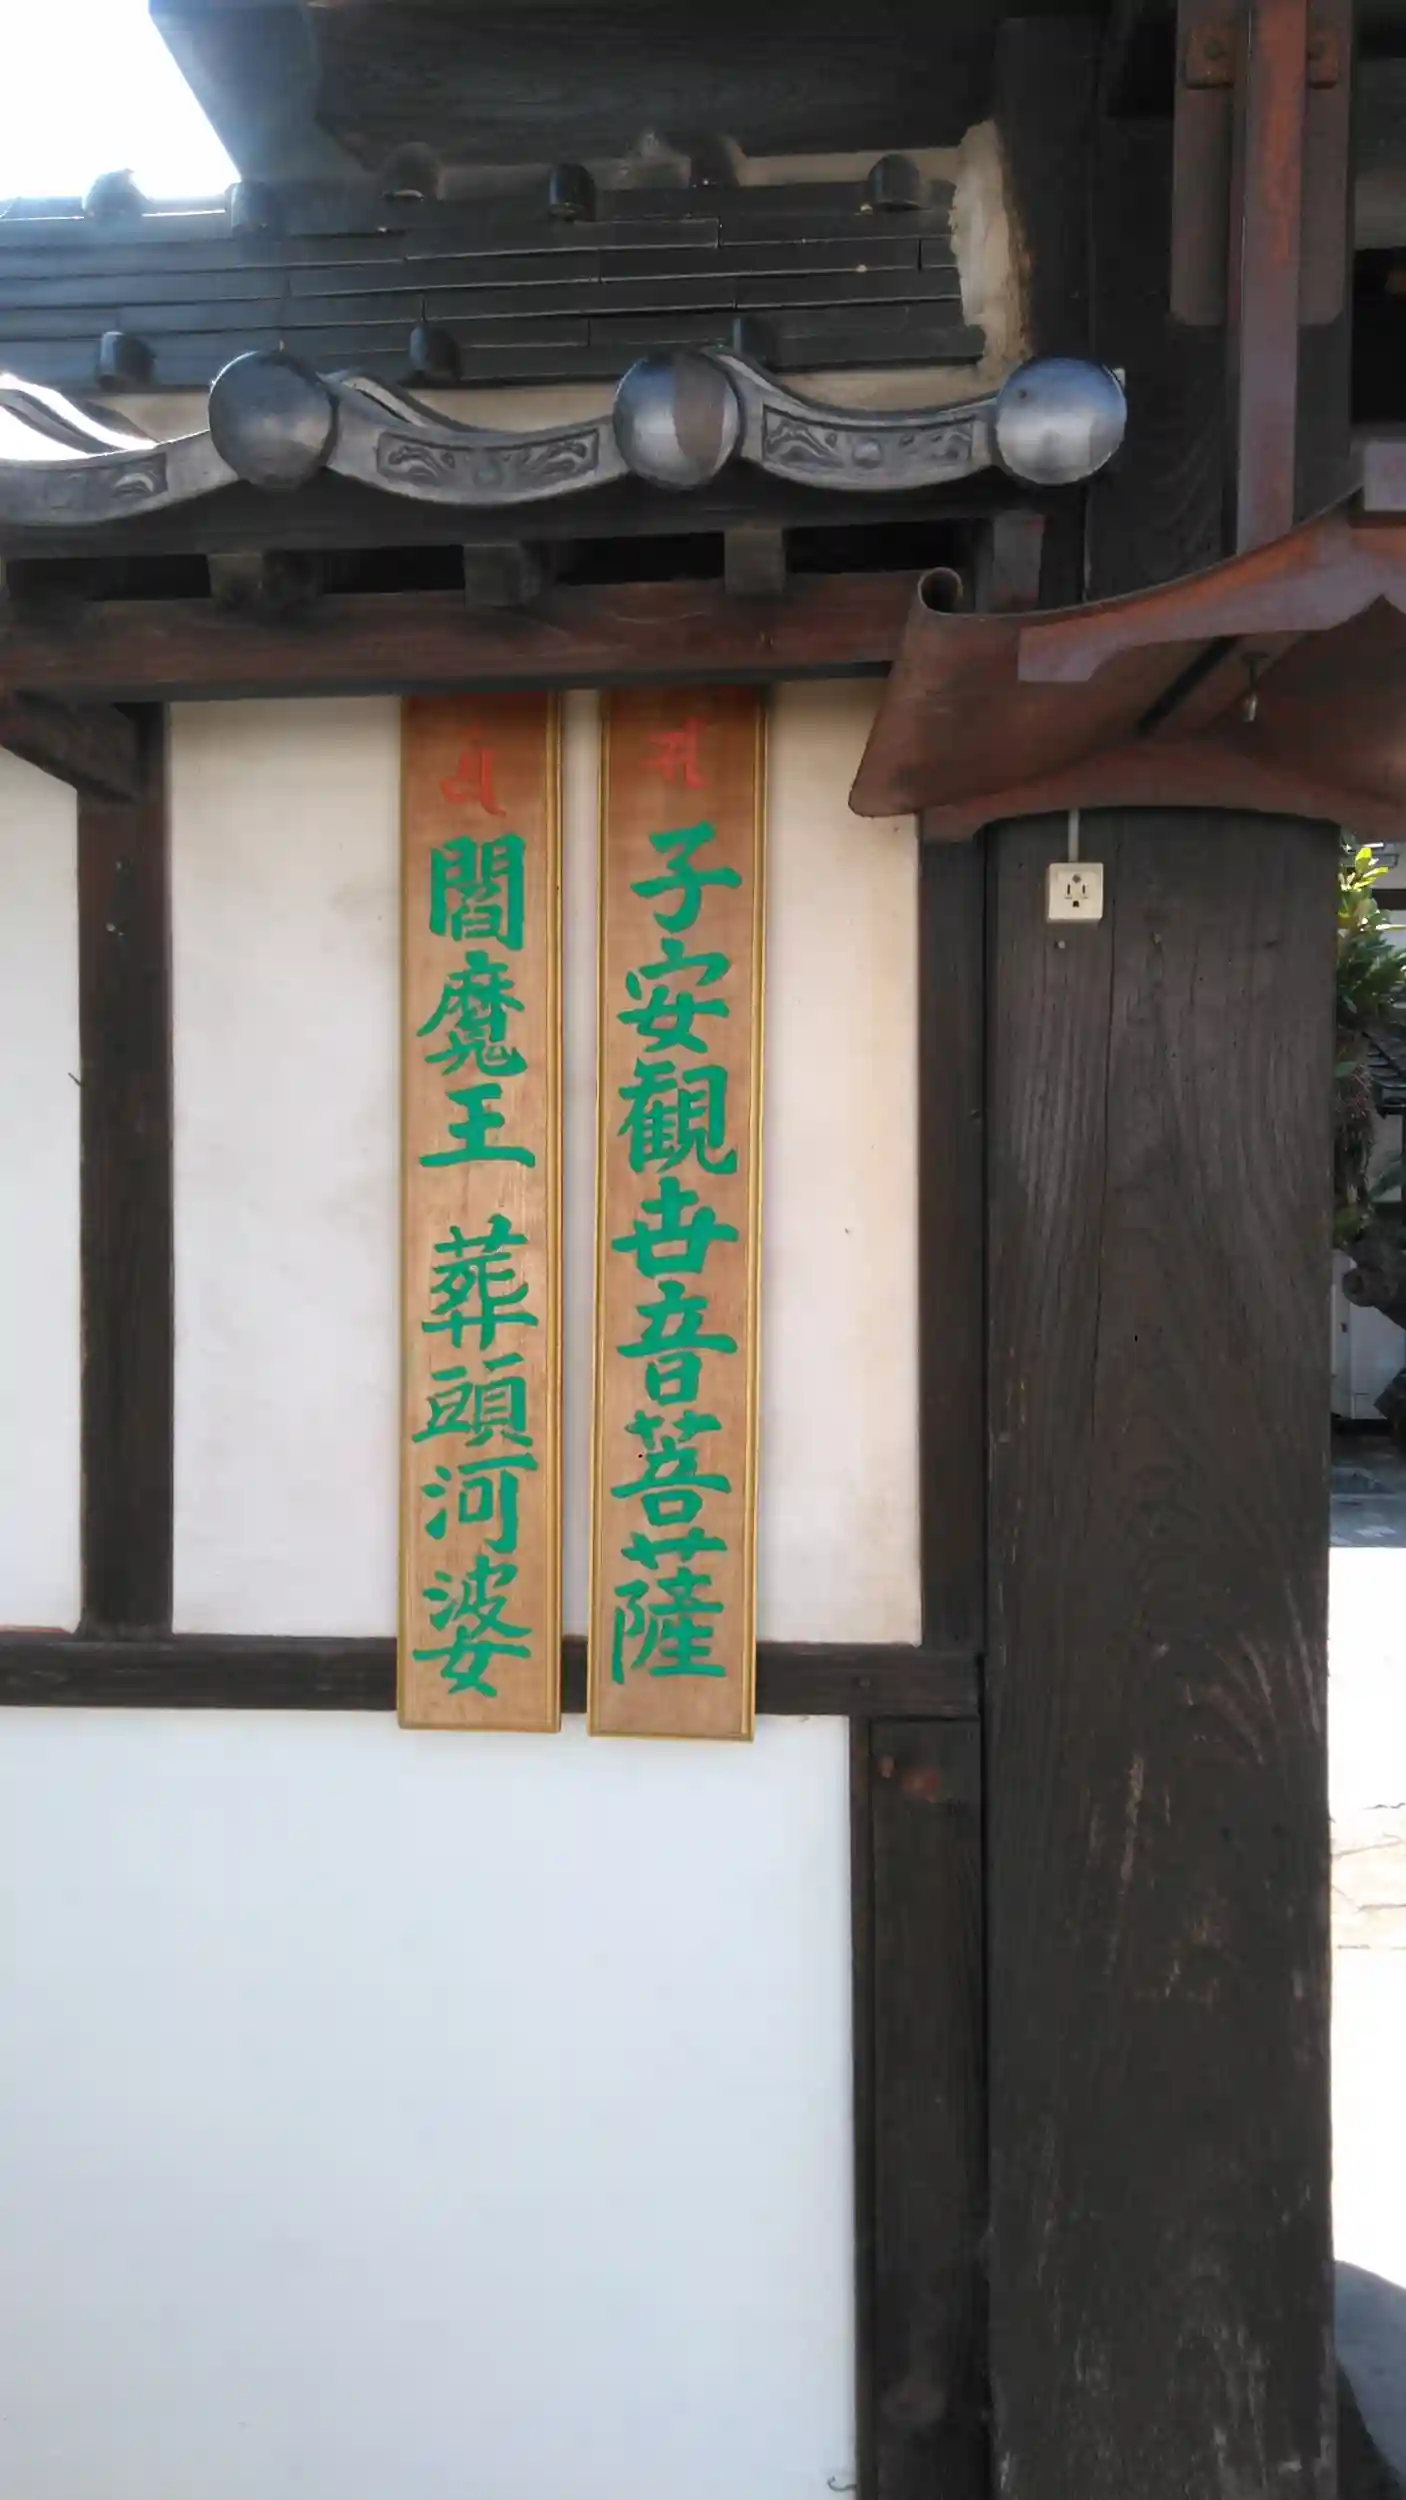 子安観世音菩薩
閻魔王 葬頭河婆